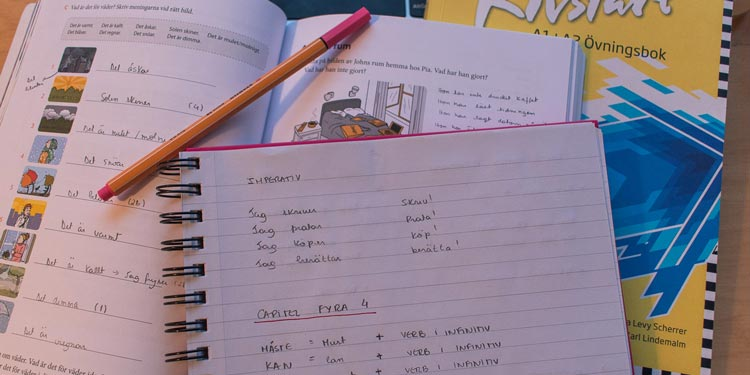 C Vad är det för väder? Skriv meningarna vid rätt bild.
Det är varmt. Det är kallt. Det åskar. Solen skiner. Det är mulet/molnigt.
Det blåser. Det regnar. Det snöar. Det är dimma.
Det åskar
Solen skiner
Det är mulet/
Det
Det är varmt
Det är kallt → Jag
Det dimma (1)
Det är
om väder. Vad är det för väder
rum
på bilden av Johns rum hemma hos Pia. Vad har han gjort?
Vad har han inte gjort?
Rivstart
A1+A2 Övningsbok
Levy Scherrer
Carl Lindemalm
IMPERATIV
Jag skriver Skriv!
Jag pratar Prata!
Jag köper Köp!
Jag berättar berätta!
CAPITEL FYRA 4
MÅSTE = Must + VERB I INFINITIV
KAN = Can + VERB I INFINITIV
+ VERB I INFINITIV